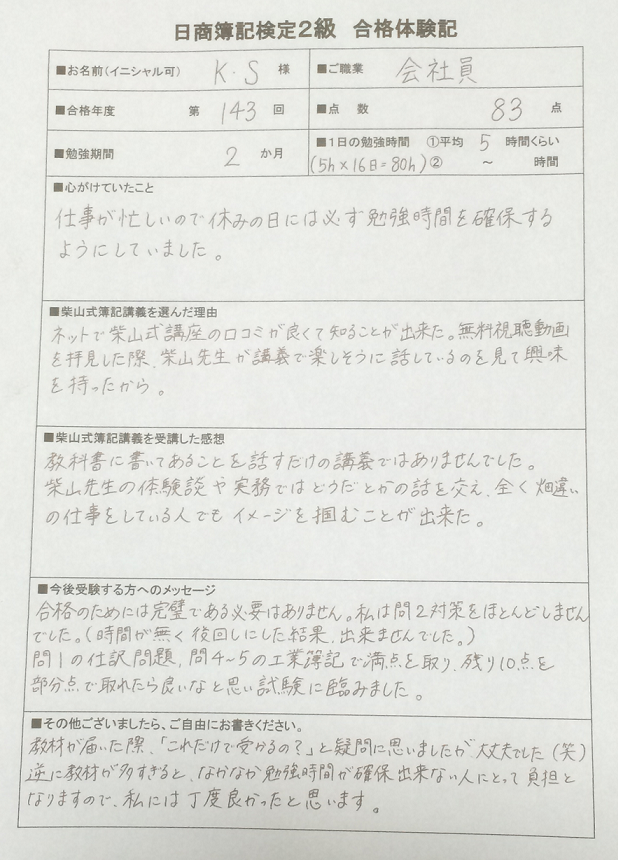 日商簿記検定2級 合格体験記
■お名前(イニシャル可) K・S 様 ■ご職業 会社員
■合格年度 第 143 回 ■点 数 83 点
■勉強期間 2 か月 ■1日の勉強時間 ①平均 5 時間くらい
(5h×16日=80h) ② ～ 時間
■心がけていたこと
仕事が忙しいので休みの日には必ず勉強時間を確保する
ようにしていました。
■柴山式簿記講義を選んだ理由
ネットで柴山式講座の口コミが良くて知ることが出来た。無料視聴動画
を拝見した際、柴山先生が講義で楽しそうに話しているのを見て興味
を持ったから。
■柴山式簿記講義を受講した感想
教科書に書いてあることを話すだけの講義ではありませんでした。
柴山先生の体験談や実務ではどうだとかの話を交え、全く畑違い
の仕事をしている人でもイメージを掴むことが出来た。
■今後受験する方へのメッセージ
合格のためには完璧である必要はありません。私は問2対策をほとんどしません
でした。(時間が無く後回しにした結果、出来ませんでした。)
問1の仕訳問題、問4~5の工業簿記で満点を取り、残り10点を
部分点で取れたら良いなと思い試験に臨みました。
■その他ございましたら、ご自由にお書きください。
教材が届いた際、「これだけで受かるの?」と疑問に思いましたが、大丈夫でした(笑)
逆に教材が多すぎると、なかなか勉強時間が確保出来ない人にとって負担と
なりますので、私には丁度良かったと思います。